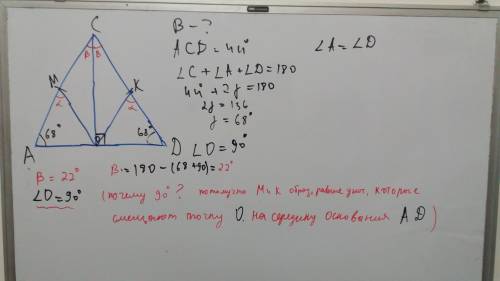 C
B - ?
ACD = 44°
∠A = ∠D
∠C + ∠A + ∠D = 180
44° + 2y = 180
2y = 136
y = 68°
∠O = 90°
B B
M
K
α
α
68°
68°
A
O
D
B = 22°
B = 180 - (68 + 90) = 22°
∠O = 90°
(почему 90° ? потому что М и К образ. равные углы, которые
смещают точку О. на середину основания AD)